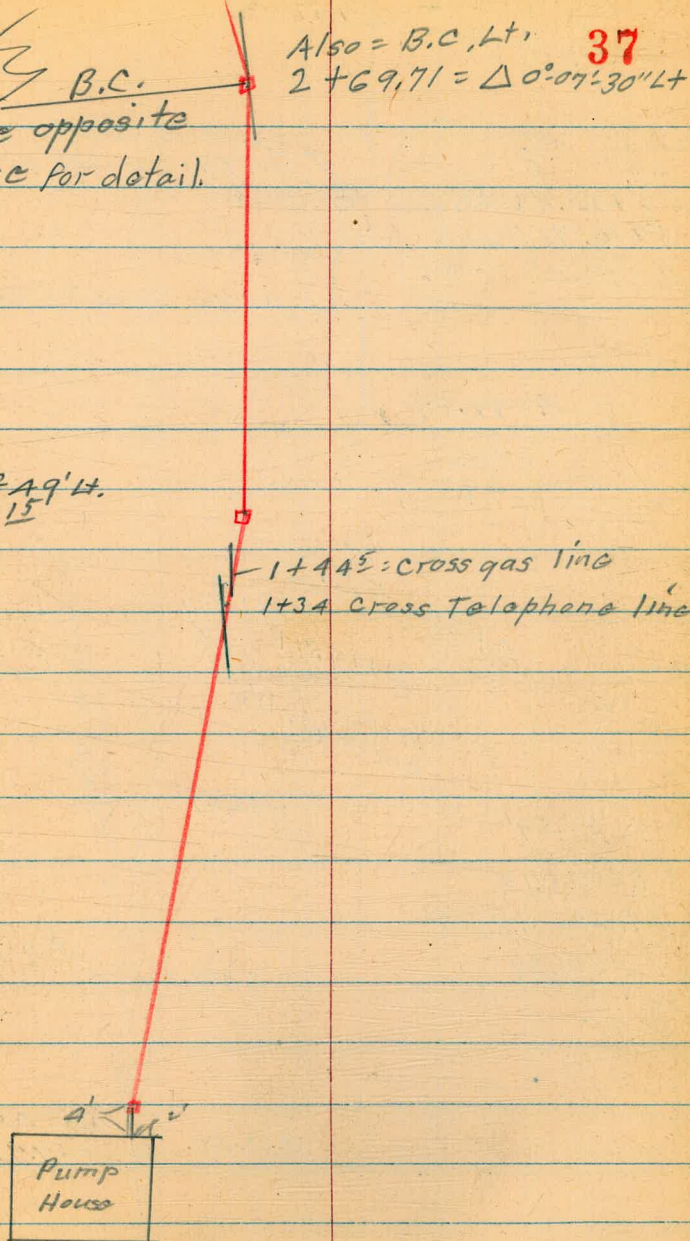 37
Also = B.C, Lt,
2 + 69.71 = Δ 0°-07'-30" Lt
B.C.
opposite
for detail.
49' Lt.
15
1+44⁵ = Cross gas line
1+34 Cross Telephone line
4' 2'
Pump
House